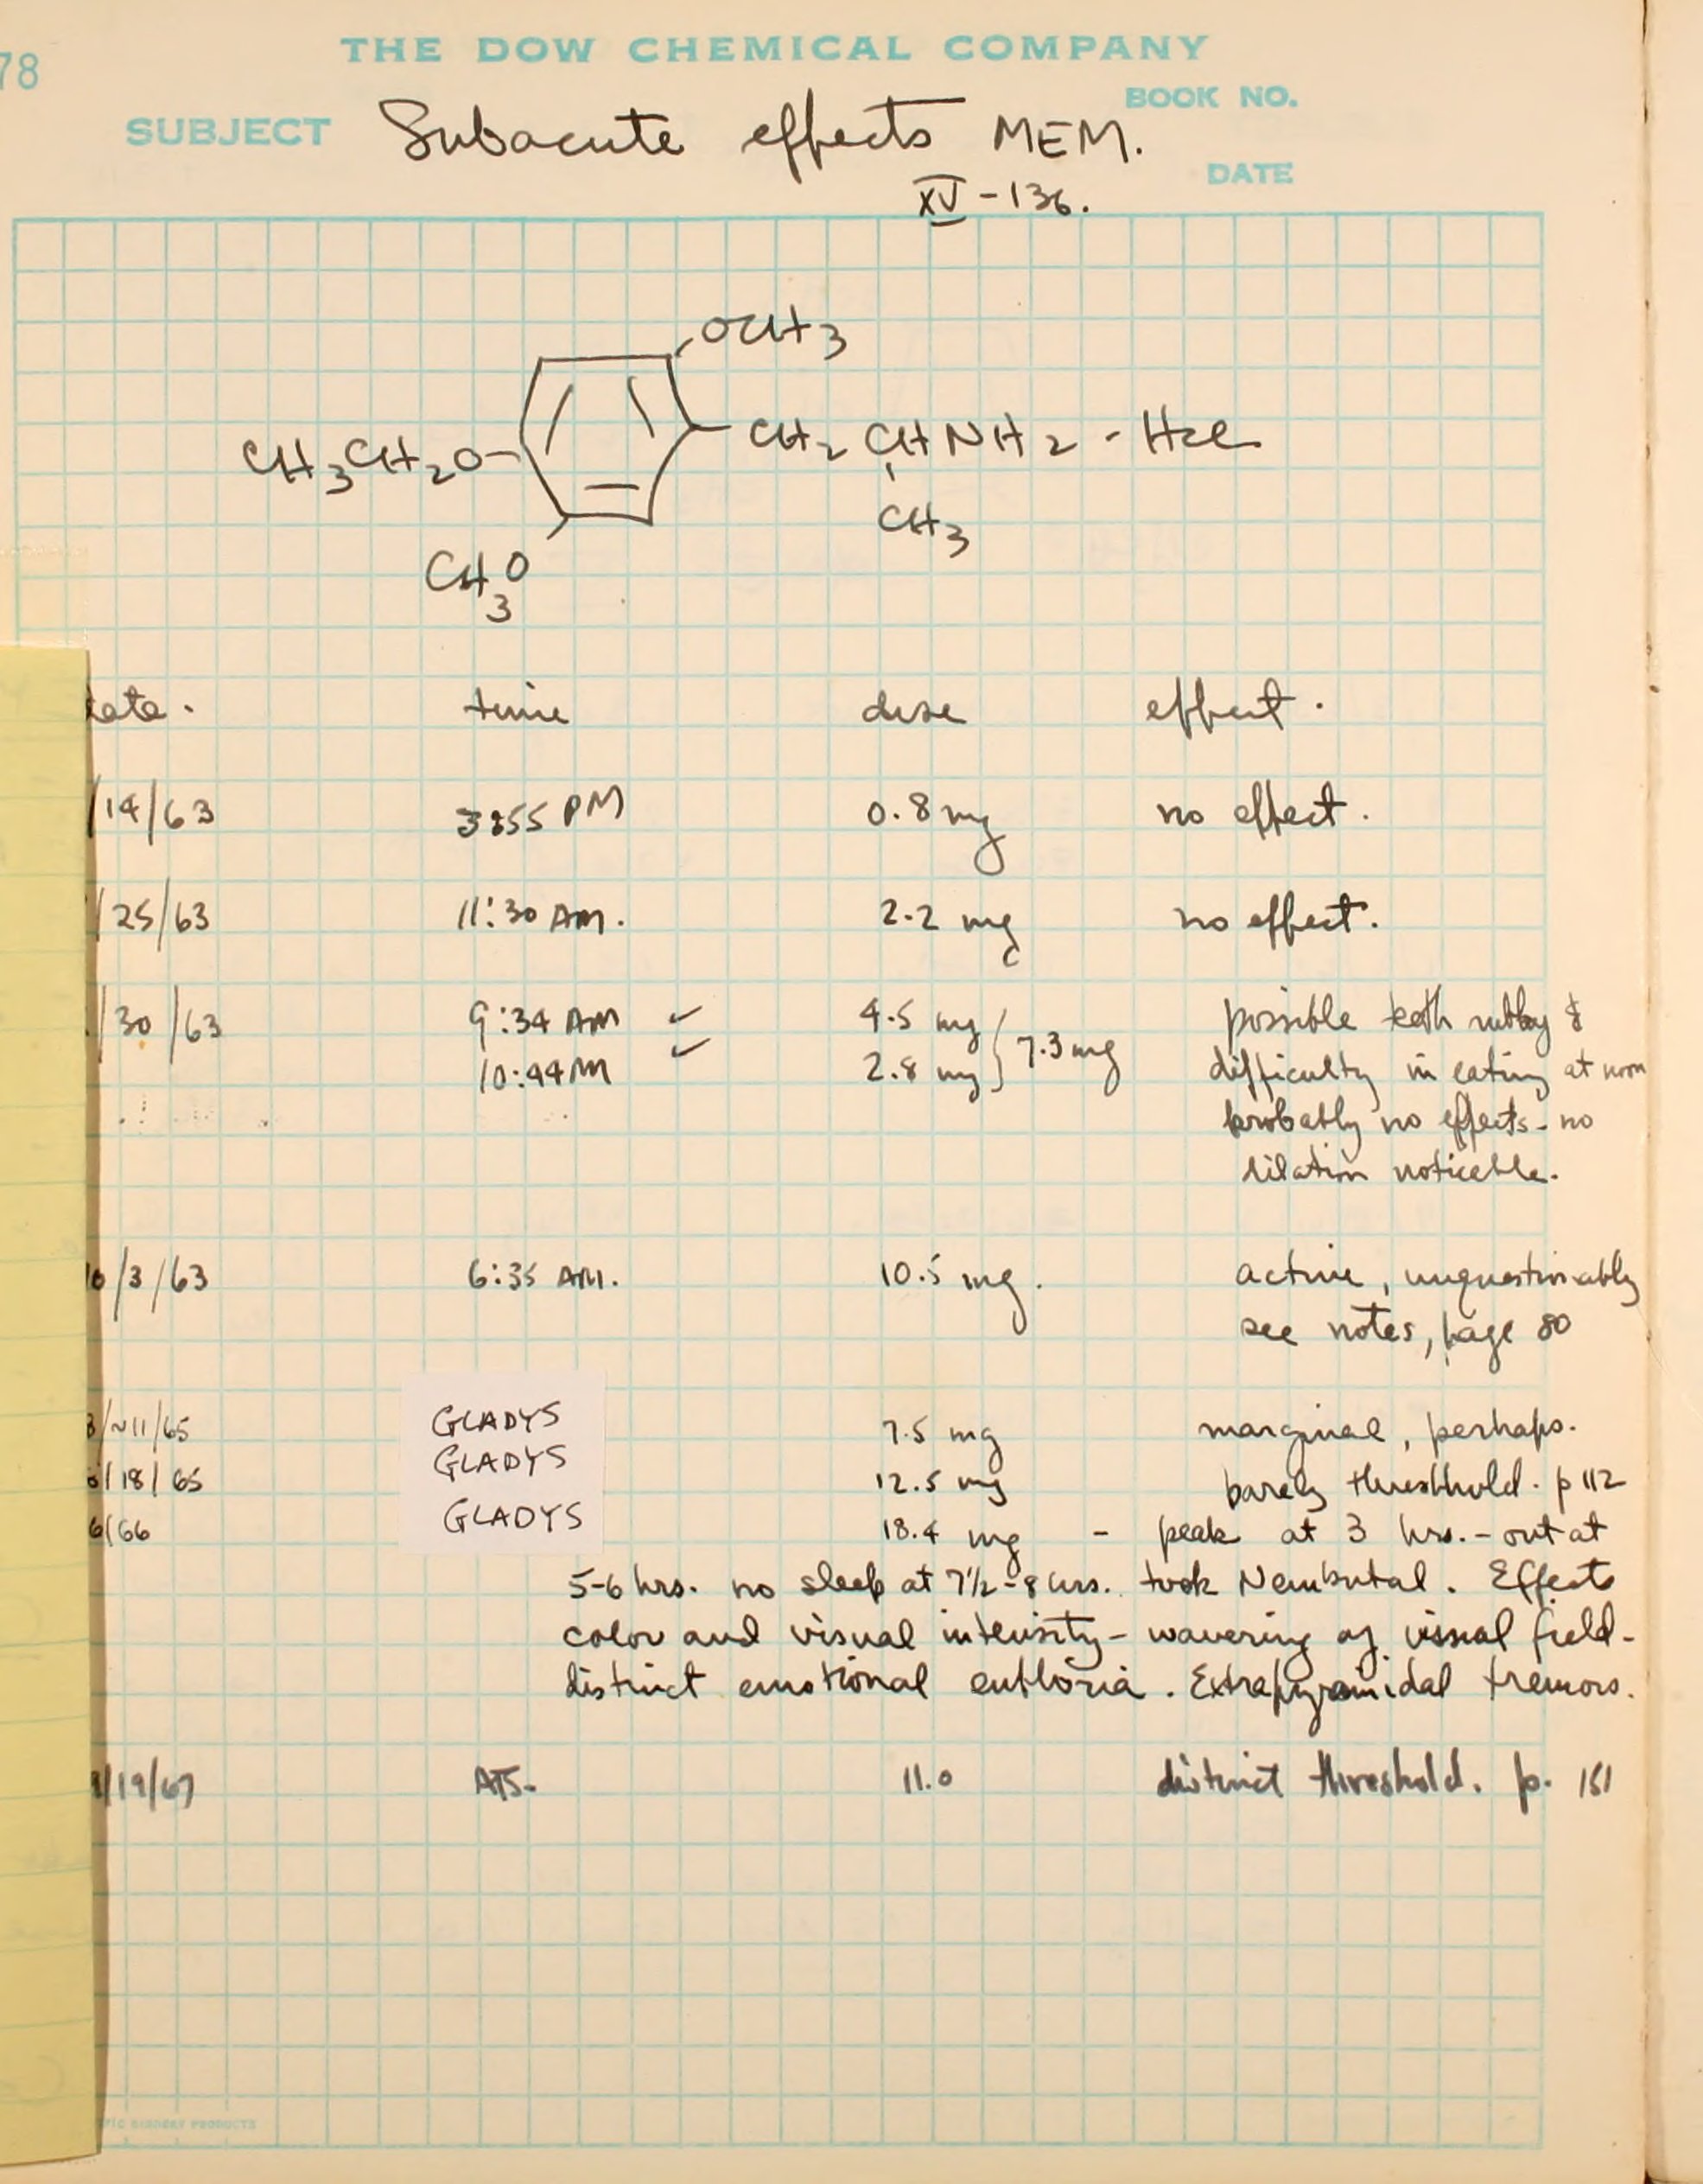 78
THE DOW CHEMICAL COMPANY
BOOK NO.
SUBJECT Subacute effects MEM.
DATE
XV - 136.
OCH3
CH3CH2O- CH2 CHNH2 - HCl
CH3
CH3O
date. time dose effect.
/14/63 3:55 PM 0.8 mg no effect.
/25/63 11:30 AM. 2.2 mg no effect.
/30/63 9:34 AM ✓ 4.5 mg } 7.3 mg possible teeth rubby &
10:44 AM ✓ 2.8 mg difficulty in eating at noon
probably no effects - no
dilation noticeable.
10/3/63 6:35 AM. 10.5 mg. active, unquestionably
see notes, page 80
3/~11/65 GLADYS 7.5 mg marginal, perhaps.
/18/65 GLADYS 12.5 mg barely threshhold. p 112
6/66 GLADYS 18.4 mg - peak at 3 hrs. - out at
5-6 hrs. no sleep at 7½-8 hrs. took Nembutal. Effects
color and visual intensity - wavering of visual field -
distinct emotional euphoria. Extrapyramidal tremors.
/19/67 ATS. 11.0 distinct threshold. p. 151
BINDERY PRODUCTS